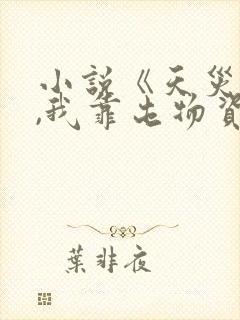 小説《天災
,我靠屯物資
葉非夜